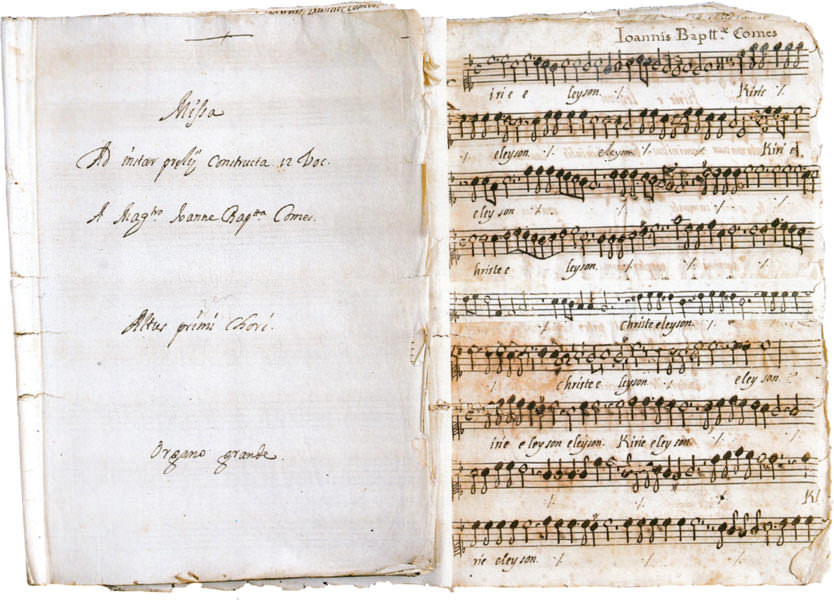 Missa
Ad instar prelij Constructa 12 Voc.
A Magro Joanne Bapta Comes.
Altus primi Chori.
Organo grande.
Ioannis Baptta Comes
irie e leyson. ·/· Kirie ·/·
·/· eleyson. ·/· eleyson ·/· Kiri el
eleyson ·/· ·/· ·/·
hriste e leyson. ·/· ·/· ·/·
christe eleyson. ·/·
·/· christe e leyson. ·/· eleyson.
irie e leyson eleyson. Kirie eleyson. ·/· ·/·
·/· ·/· Ki
rie eleyson. ·/· ·/· ·/· ·/·